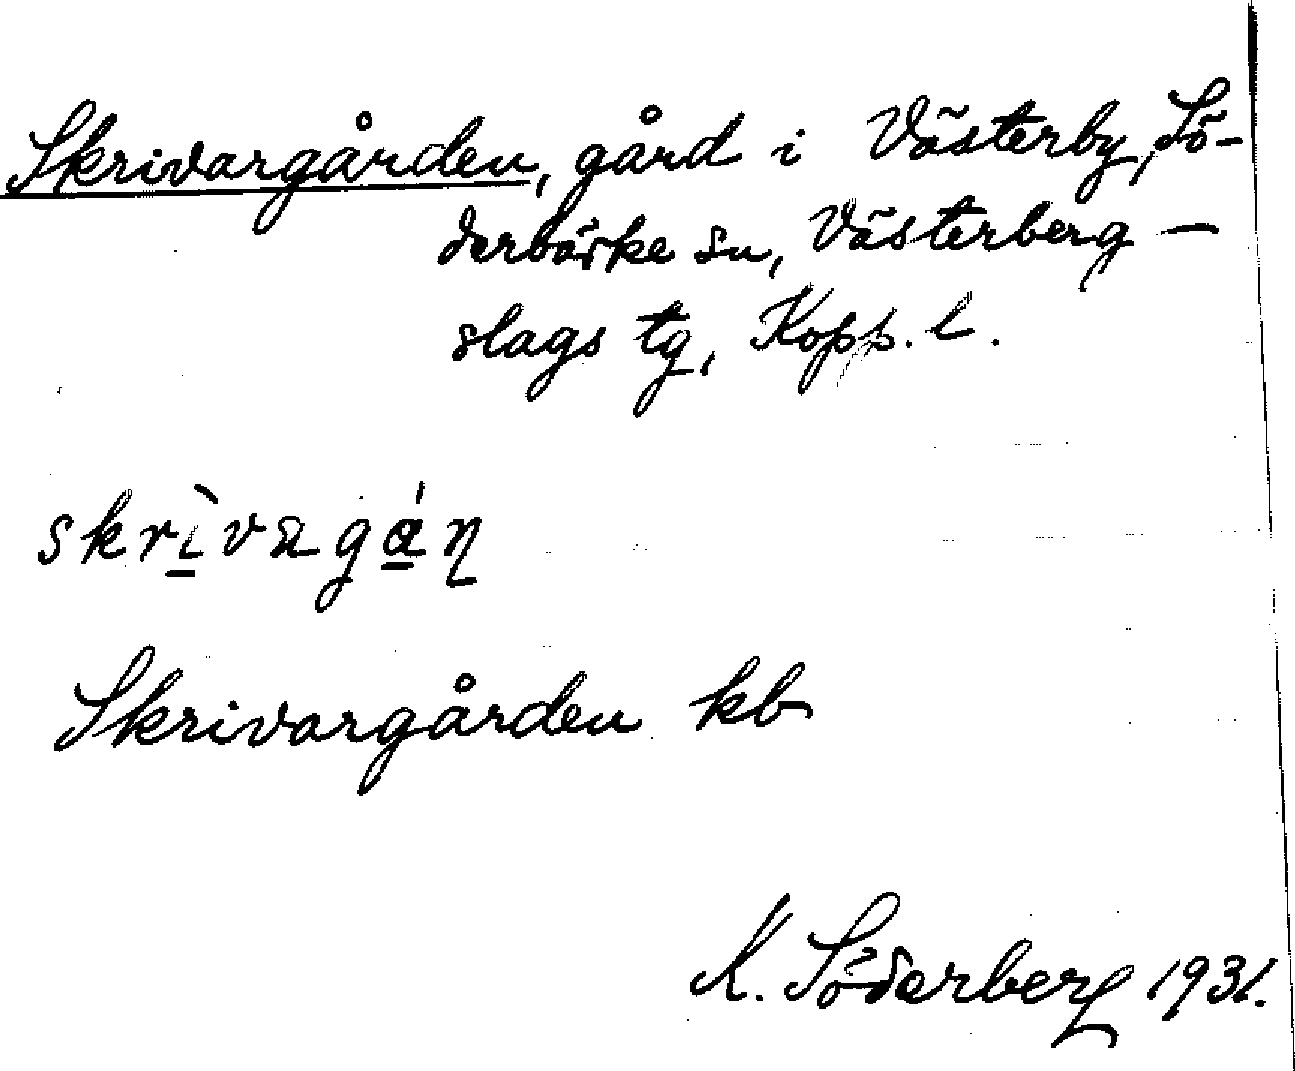 Skrivargården, gård i Västerby, Sö-
derbärke sn, Västerberg-
slags tg, Kopp. l.
skrìvagán
Skrivargården kb
K. Söderberg 1931.